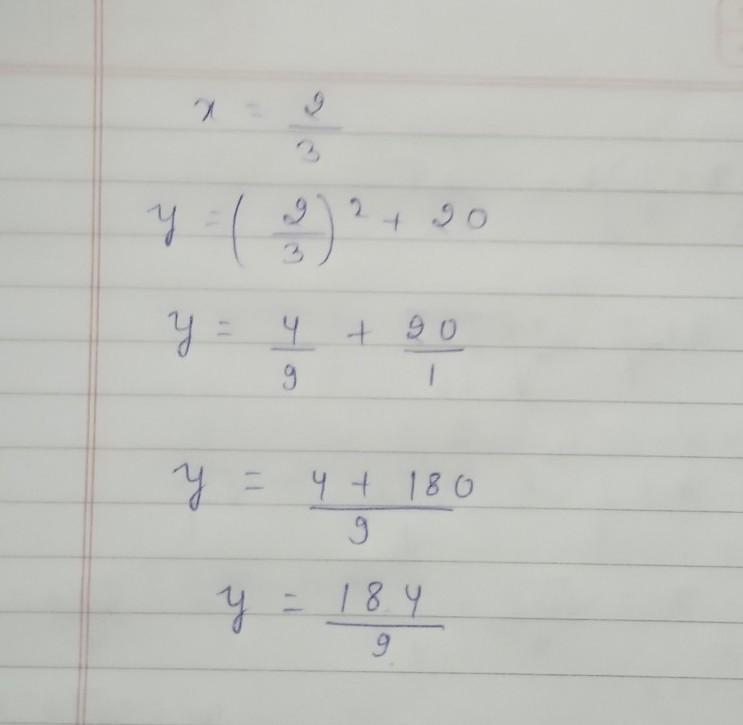 x = 2/3
y = (2/3)² + 20
y = 4/9 + 20/1
y = 4 + 180/9
y = 184/9